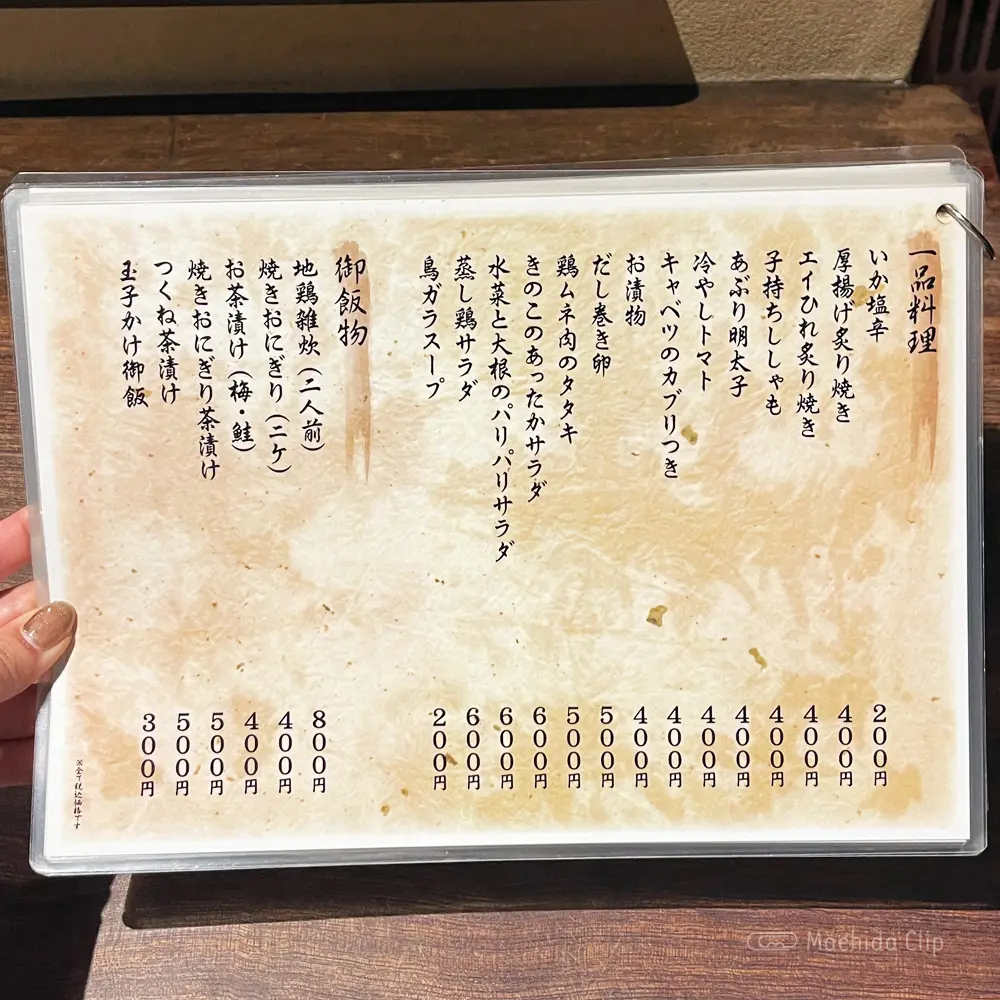 一品料理
いか塩辛 200円
厚揚げ炙り焼き 400円
エイひれ炙り焼き 400円
子持ちししゃも 400円
あぶり明太子 400円
冷やしトマト 400円
キャベツのカブリつき 400円
お漬物 400円
だし巻き卵 500円
鶏ムネ肉のタタキ 500円
きのこのあったかサラダ 600円
水菜と大根のパリパリサラダ 600円
蒸し鶏サラダ 600円
鳥ガラスープ 200円
御飯物
地鶏雑炊(二人前) 800円
焼きおにぎり(二ケ) 400円
お茶漬け(梅・鮭) 400円
焼きおにぎり茶漬け 500円
つくね茶漬け 500円
玉子かけ御飯 300円
※全て税込価格です
Machida Clip